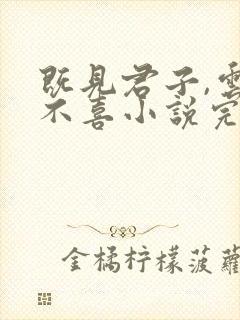 既見君子,雲
不喜小說完
金橘柠檬菠蘿